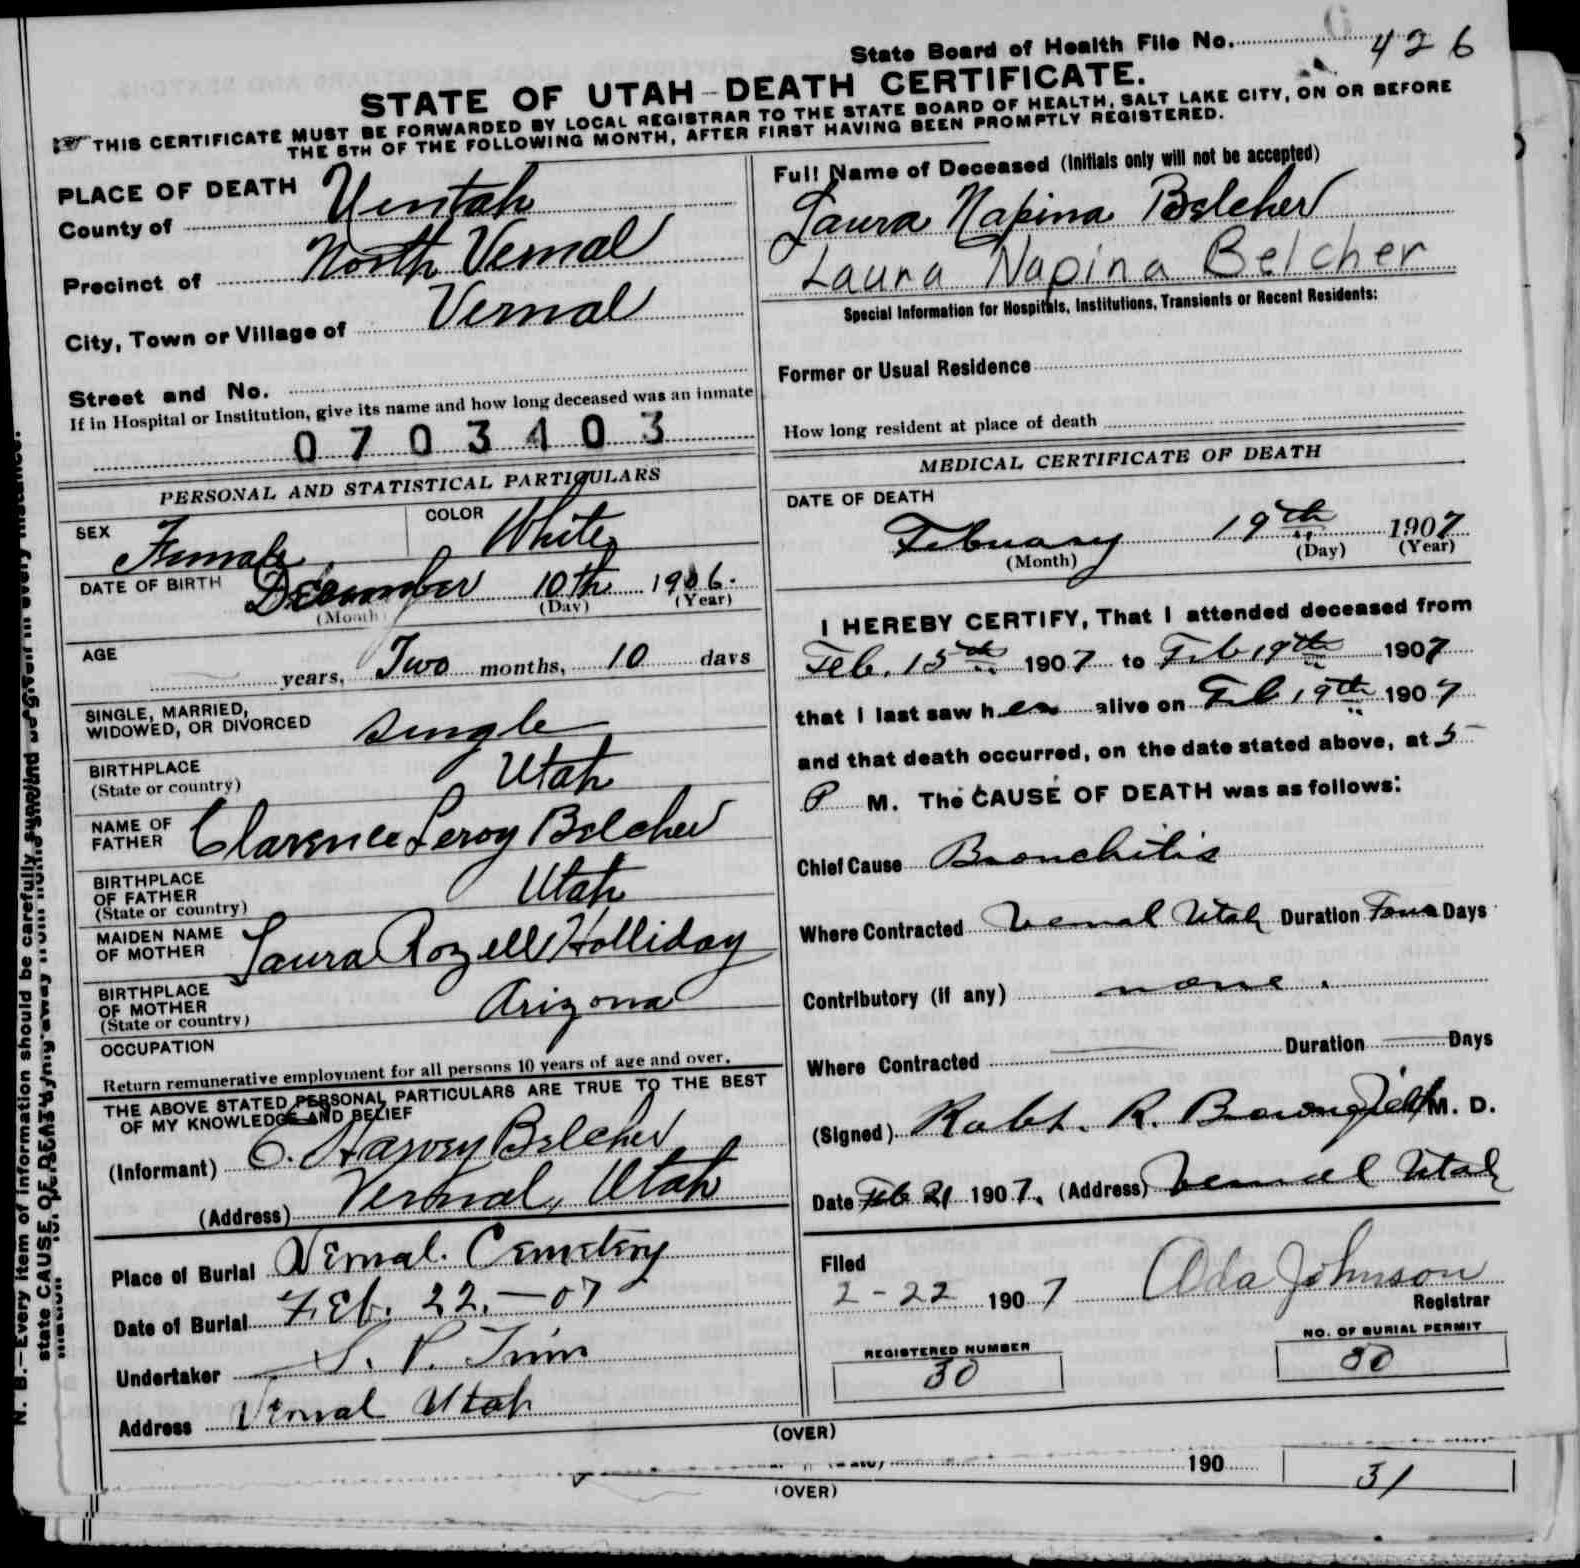 State Board of Health File No. 426
STATE OF UTAH-DEATH CERTIFICATE.
THIS CERTIFICATE MUST BE FORWARDED BY LOCAL REGISTRAR TO THE STATE BOARD OF HEALTH, SALT LAKE CITY, ON OR BEFORE
THE 5TH OF THE FOLLOWING MONTH, AFTER FIRST HAVING BEEN PROMPTLY REGISTERED.
PLACE OF DEATH
County of Uintah
Precinct of North Vernal
City, Town or Village of Vernal
Street and No.
If in Hospital or Institution, give its name and how long deceased was an inmate
0703403
PERSONAL AND STATISTICAL PARTICULARS
SEX Female COLOR White
DATE OF BIRTH December 10th 1906.
(Month) (Day) (Year)
AGE years, Two months, 10 days
SINGLE, MARRIED,
WIDOWED, OR DIVORCED single
BIRTHPLACE
(State or country) Utah
NAME OF
FATHER Clarence Leroy Belcher
BIRTHPLACE
OF FATHER
(State or country) Utah
MAIDEN NAME
OF MOTHER Laura Rozell Holliday
BIRTHPLACE
OF MOTHER
(State or country) Arizona
OCCUPATION
Return remunerative employment for all persons 10 years of age and over.
THE ABOVE STATED PERSONAL PARTICULARS ARE TRUE TO THE BEST
OF MY KNOWLEDGE AND BELIEF
(Informant) C. Harvey Belcher
(Address) Vernal, Utah
Place of Burial Vernal. Cemetery
Date of Burial Feb. 22.-07
Undertaker S. P.
Address Vernal Utah
Full Name of Deceased (Initials only will not be accepted)
Laura Napina Belcher
Laura Napina Belcher
Special Information for Hospitals, Institutions, Transients or Recent Residents:
Former or Usual Residence
How long resident at place of death
MEDICAL CERTIFICATE OF DEATH
DATE OF DEATH
February 19th 1907
(Month) (Day) (Year)
I HEREBY CERTIFY, That I attended deceased from
Feb. 15th 1907 to Feb 19th 1907
that I last saw her alive on Feb 19th 1907
and that death occurred, on the date stated above, at 5
P M. The CAUSE OF DEATH was as follows:
Chief Cause Bronchitis
Where Contracted Vernal Utah Duration Four Days
Contributory (if any) none.
Where Contracted Duration Days
(Signed) Robt. R. Bownfield M. D.
Date Feb 21 1907. (Address) Vernal Utah
Filed
2-22 1907 Ada Johnson
Registrar
REGISTERED NUMBER
30
NO. OF BURIAL PERMIT
30
(OVER)
190 31
(OVER)
N. B.—Every item of information should be carefully supplied
state CAUSE OF DEATH